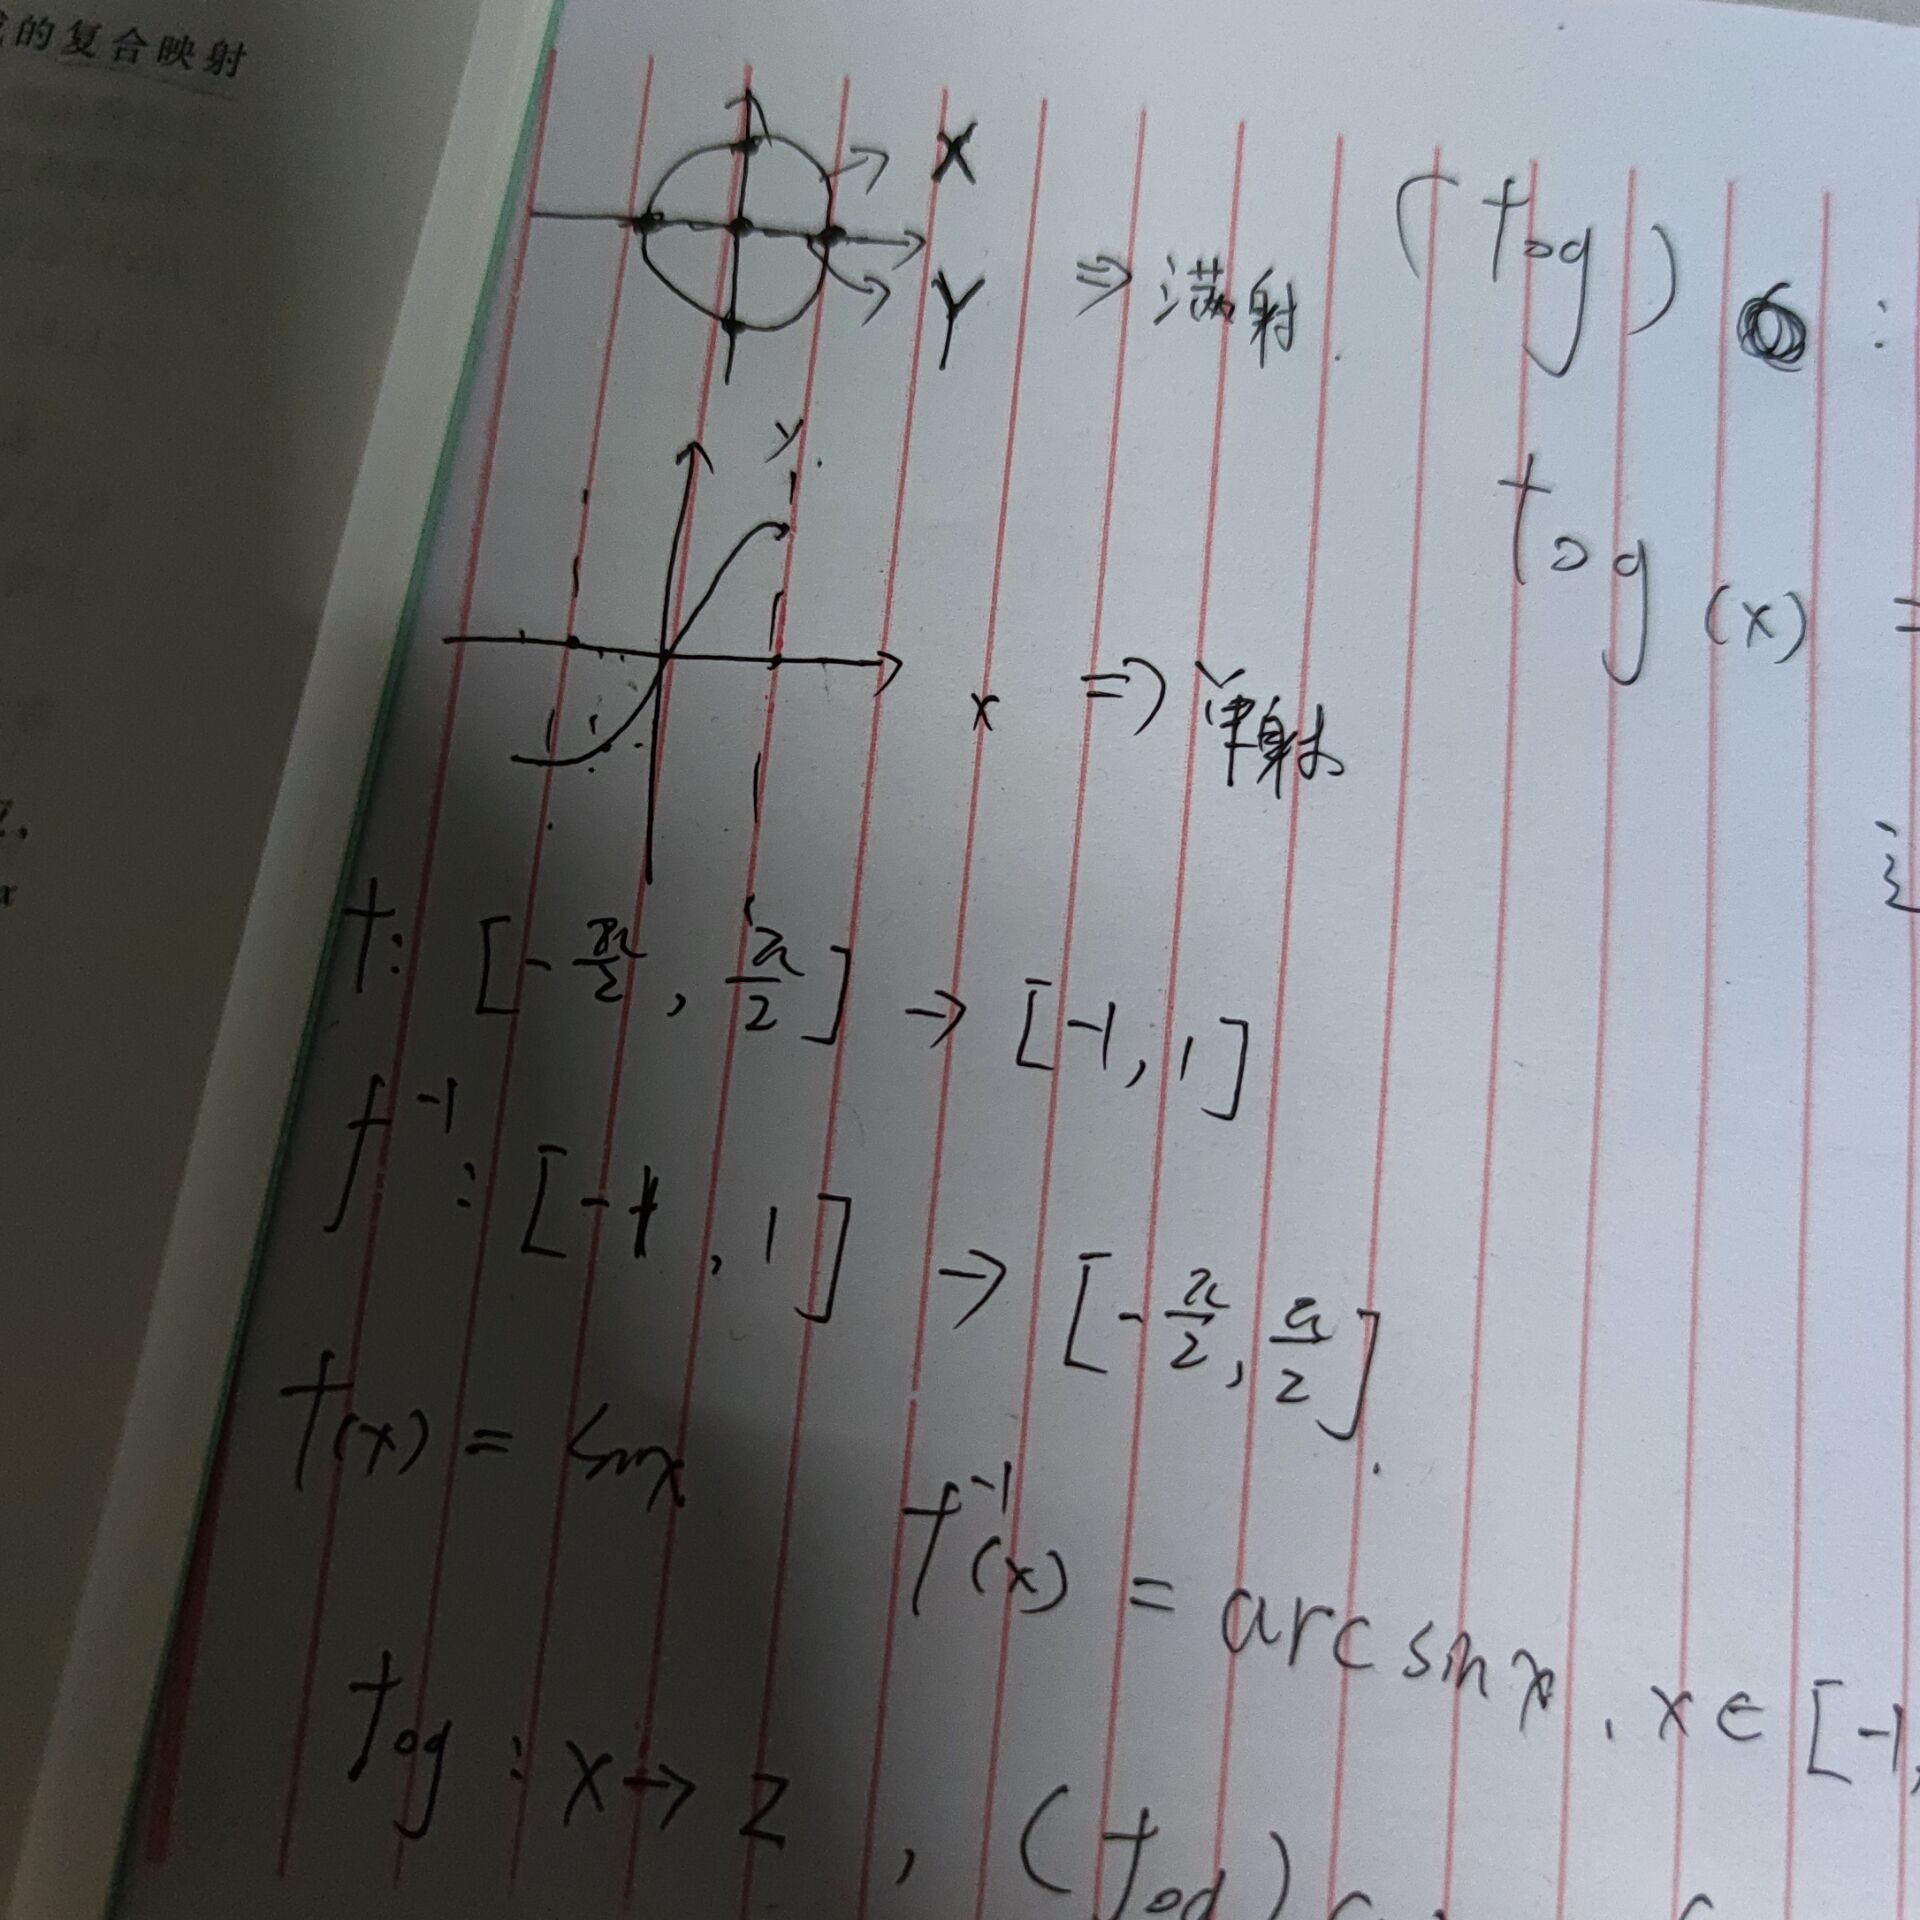 的复合映射
X
Y ⇒ 满射.
y
x ⇒ 单射
f: [-π/2, π/2] → [-1, 1]
f⁻¹: [-1, 1] → [-π/2, π/2].
f(x) = sinx
f⁻¹(x) = arcsinx, x∈[-1,
f∘g : X → Z, (f∘g)
(f∘g) :
f∘g (x) =